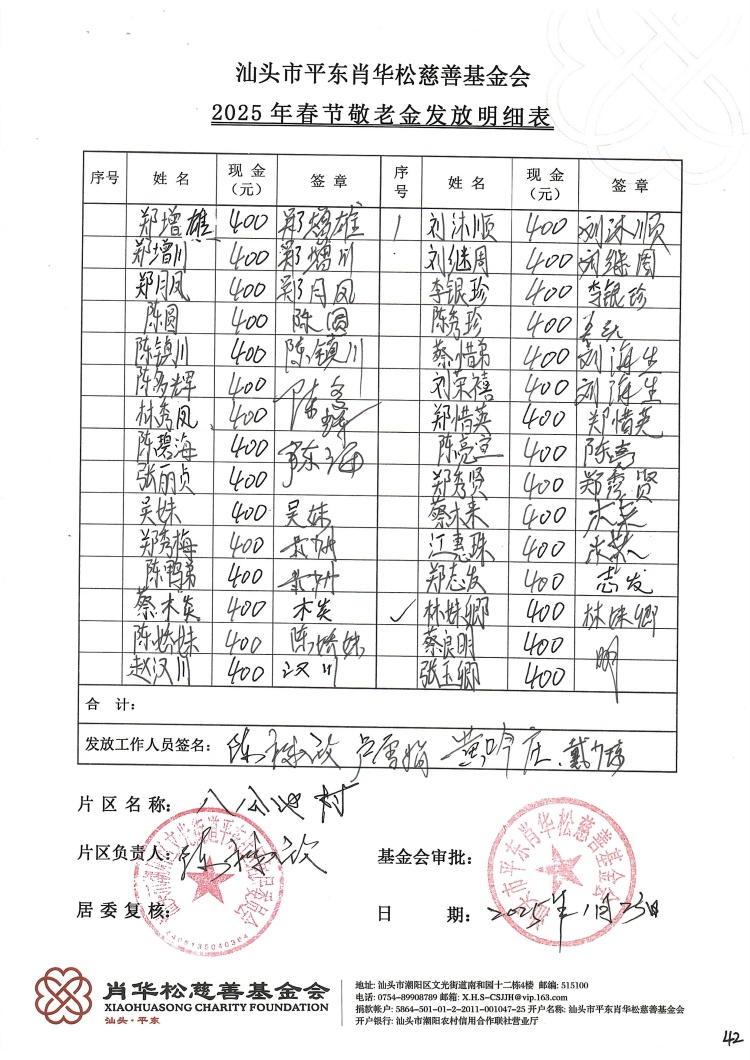 汕头市平东肖华松慈善基金会
2025 年春节敬老金发放明细表
序号 姓 名 现 金（元） 签 章 序号 姓 名 现 金（元） 签 章
郑增雄 400 郑增雄 1 刘沐顺 400 刘沐顺
郑增川 400 郑增川 刘继周 400 刘继周
郑月凤 400 郑月凤 李银珍 400 李银珍
陈圆 400 陈圆 陈秀珍 400
陈镇川 400 陈镇川 蔡惜弟 400 刘海生
陈秀辉 400 刘荣禧 400 刘海生
林秀凤 400 郑惜英 400 郑惜英
陈碧海 400 陈亮宣 400
张丽贞 400 郑秀贤 400 郑秀贤
吴妹 400 吴妹 蔡木来 400 木来
郑秀梅 400 江惠珠 400
陈鄂弟 400 郑志发 400 志发
蔡木炎 400 木炎 林妹卿 400 林妹卿
陈娇妹 400 陈娇妹 蔡良明 400 明
赵汉川 400 汉川 张玉卿 400
合 计：
发放工作人员签名：
片区名称： 村
片区负责人：
基金会审批：
居委复核：
日 期：2025年1月23日
汕头市平东肖华松慈善基金会
肖华松慈善基金会
XIAOHUASONG CHARITY FOUNDATION
汕头·平东
地址: 汕头市潮阳区文光街道南和园十二栋4楼 邮编: 515100
电话: 0754-89908789 邮箱: X.H.S-CSJJH@vip.163.com
捐款帐户: 5864-501-01-2-2011-001047-25 开户名称: 汕头市平东肖华松慈善基金会
开户银行: 汕头市潮阳农村信用合作联社营业厅
42